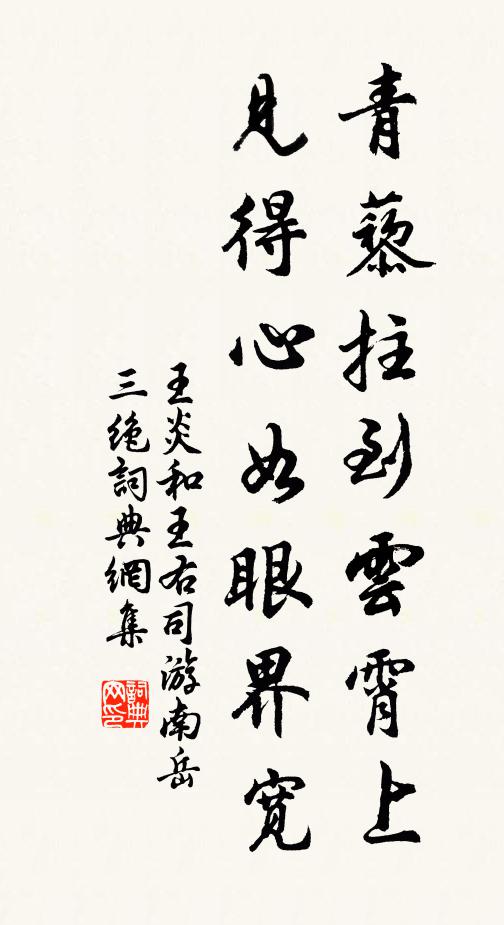 青藜拄到雲霄上
見得心如眼界寬
王炎和王右司游南岳
三絶詞典網集
詞典網印